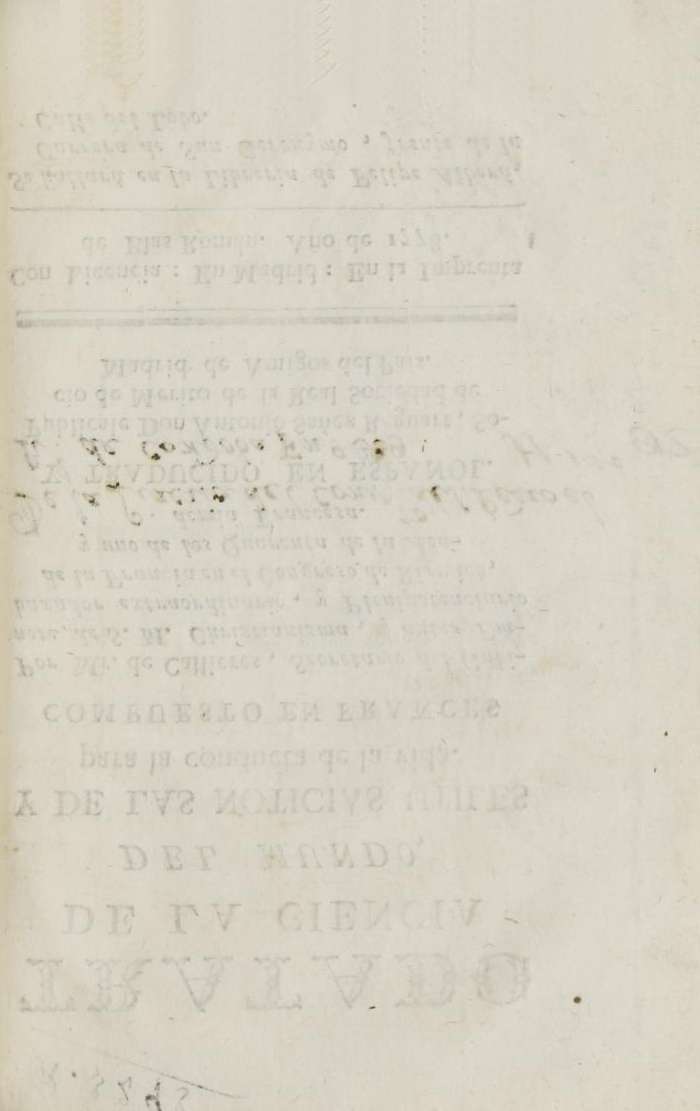 TRATADO
DE LA CIENCIA
DEL MUNDO,
Y DE LAS NOTICIAS UTILES
para la conducta de la vida.
COMPUESTO EN FRANCES
Por Mr. de Callieres, Secretario del Gabi-
nete de S. M. Christianisima, y
baxador extraordinario, y Plenipotenciario
de la Francia en el Congreso de
y uno de los Quarenta de la Aca-
demia Francesa.
Y TRADUCIDO EN ESPAÑOL.
Publicale Don Antonio So-
cio de Merito de la Real Sociedad de
Madrid de Amigos del País.
Con Licencia: En Madrid: En la Imprenta
de Blas Román. Año de 1778.
Se hallará en la Libreria de Felipe Alberá,
Carrera de San Geronymo, frente de la
Calle del Lobo.